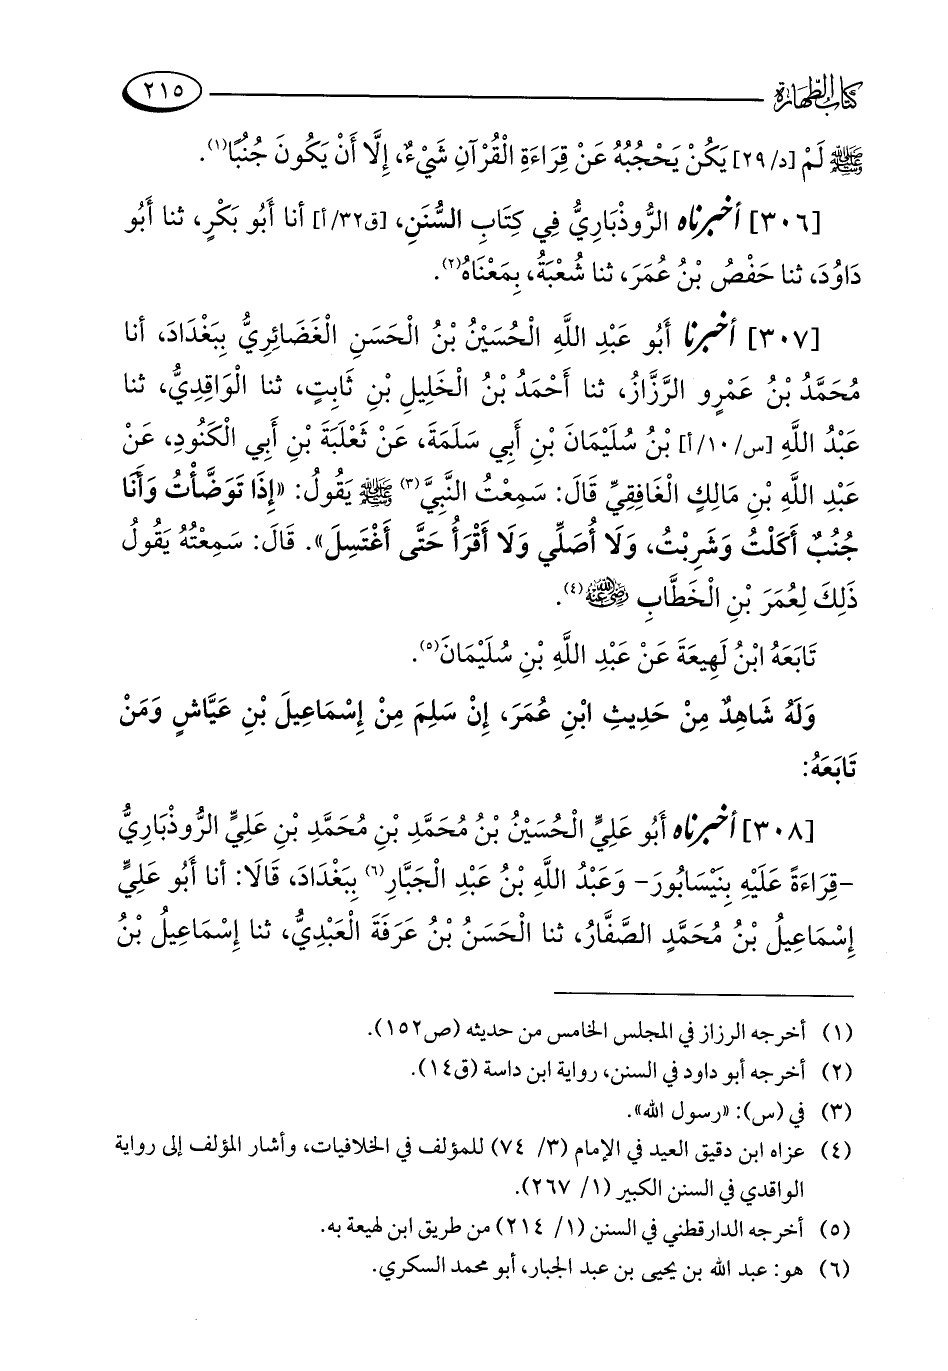 كتاب الطهارة ٢١٥
ﷺ لَمْ [د/٢٩] يَكُنْ يَحْجُبُهُ عَنْ قِرَاءَةِ الْقُرْآنِ شَيْءٌ، إِلَّا أَنْ يَكُونَ جُنُبًا(١).
[٣٠٦] أخبرناه الرُّوذْبَارِيُّ فِي كِتَابِ السُّنَنِ، [ق٣٢/أ] أنا أَبُو بَكْرٍ، ثنا أَبُو
دَاوُدَ، ثنا حَفْصُ بْنُ عُمَرَ، ثنا شُعْبَةُ، بِمَعْنَاهُ(٢).
[٣٠٧] أخبرنا أَبُو عَبْدِ اللَّهِ الْحُسَيْنُ بْنُ الْحَسَنِ الْغَضَائِرِيُّ بِبَغْدَادَ، أنا
مُحَمَّدُ بْنُ عَمْرٍو الرَّزَّازُ، ثنا أَحْمَدُ بْنُ الْخَلِيلِ بْنِ ثَابِتٍ، ثنا الْوَاقِدِيُّ، ثنا
عَبْدُ اللَّهِ [س/١٠/أ] بْنُ سُلَيْمَانَ بْنِ أَبِي سَلَمَةَ، عَنْ ثَعْلَبَةَ بْنِ أَبِي الْكَنُودِ، عَنْ
عَبْدِ اللَّهِ بْنِ مَالِكٍ الْغَافِقِيِّ قَالَ: سَمِعْتُ النَّبِيَّ(٣) ﷺ يَقُولُ: «إِذَا تَوَضَّأْتُ وَأَنَا
جُنُبٌ أَكَلْتُ وَشَرِبْتُ، وَلَا أُصَلِّي وَلَا أَقْرَأُ حَتَّى أَغْتَسِلَ». قَالَ: سَمِعْتُهُ يَقُولُ
ذَلِكَ لِعُمَرَ بْنِ الْخَطَّابِ رضي الله عنه(٤).
تَابَعَهُ ابْنُ لَهِيعَةَ عَنْ عَبْدِ اللَّهِ بْنِ سُلَيْمَانَ(٥).
وَلَهُ شَاهِدٌ مِنْ حَدِيثِ ابْنِ عُمَرَ، إِنْ سَلِمَ مِنْ إِسْمَاعِيلَ بْنِ عَيَّاشٍ وَمَنْ
تَابَعَهُ:
[٣٠٨] أخبرناه أَبُو عَلِيٍّ الْحُسَيْنُ بْنُ مُحَمَّدِ بْنِ مُحَمَّدِ بْنِ عَلِيٍّ الرُّوذْبَارِيُّ
-قِرَاءَةً عَلَيْهِ بِنَيْسَابُورَ- وَعَبْدُ اللَّهِ بْنُ عَبْدِ الْجَبَّارِ(٦) بِبَغْدَادَ، قَالَا: أنا أَبُو عَلِيٍّ
إِسْمَاعِيلُ بْنُ مُحَمَّدٍ الصَّفَّارُ، ثنا الْحَسَنُ بْنُ عَرَفَةَ الْعَبْدِيُّ، ثنا إِسْمَاعِيلُ بْنُ
(١) أخرجه الرزاز في المجلس الخامس من حديثه (ص١٥٢).
(٢) أخرجه أبو داود في السنن، رواية ابن داسة (ق١٤).
(٣) في (س): «رسول الله».
(٤) عزاه ابن دقيق العيد في الإمام (٣/ ٧٤) للمؤلف في الخلافيات، وأشار المؤلف إلى رواية
الواقدي في السنن الكبير (١/ ٢٦٧).
(٥) أخرجه الدارقطني في السنن (١/ ٢١٤) من طريق ابن لهيعة به.
(٦) هو: عبد الله بن يحيى بن عبد الجبار، أبو محمد السكري.